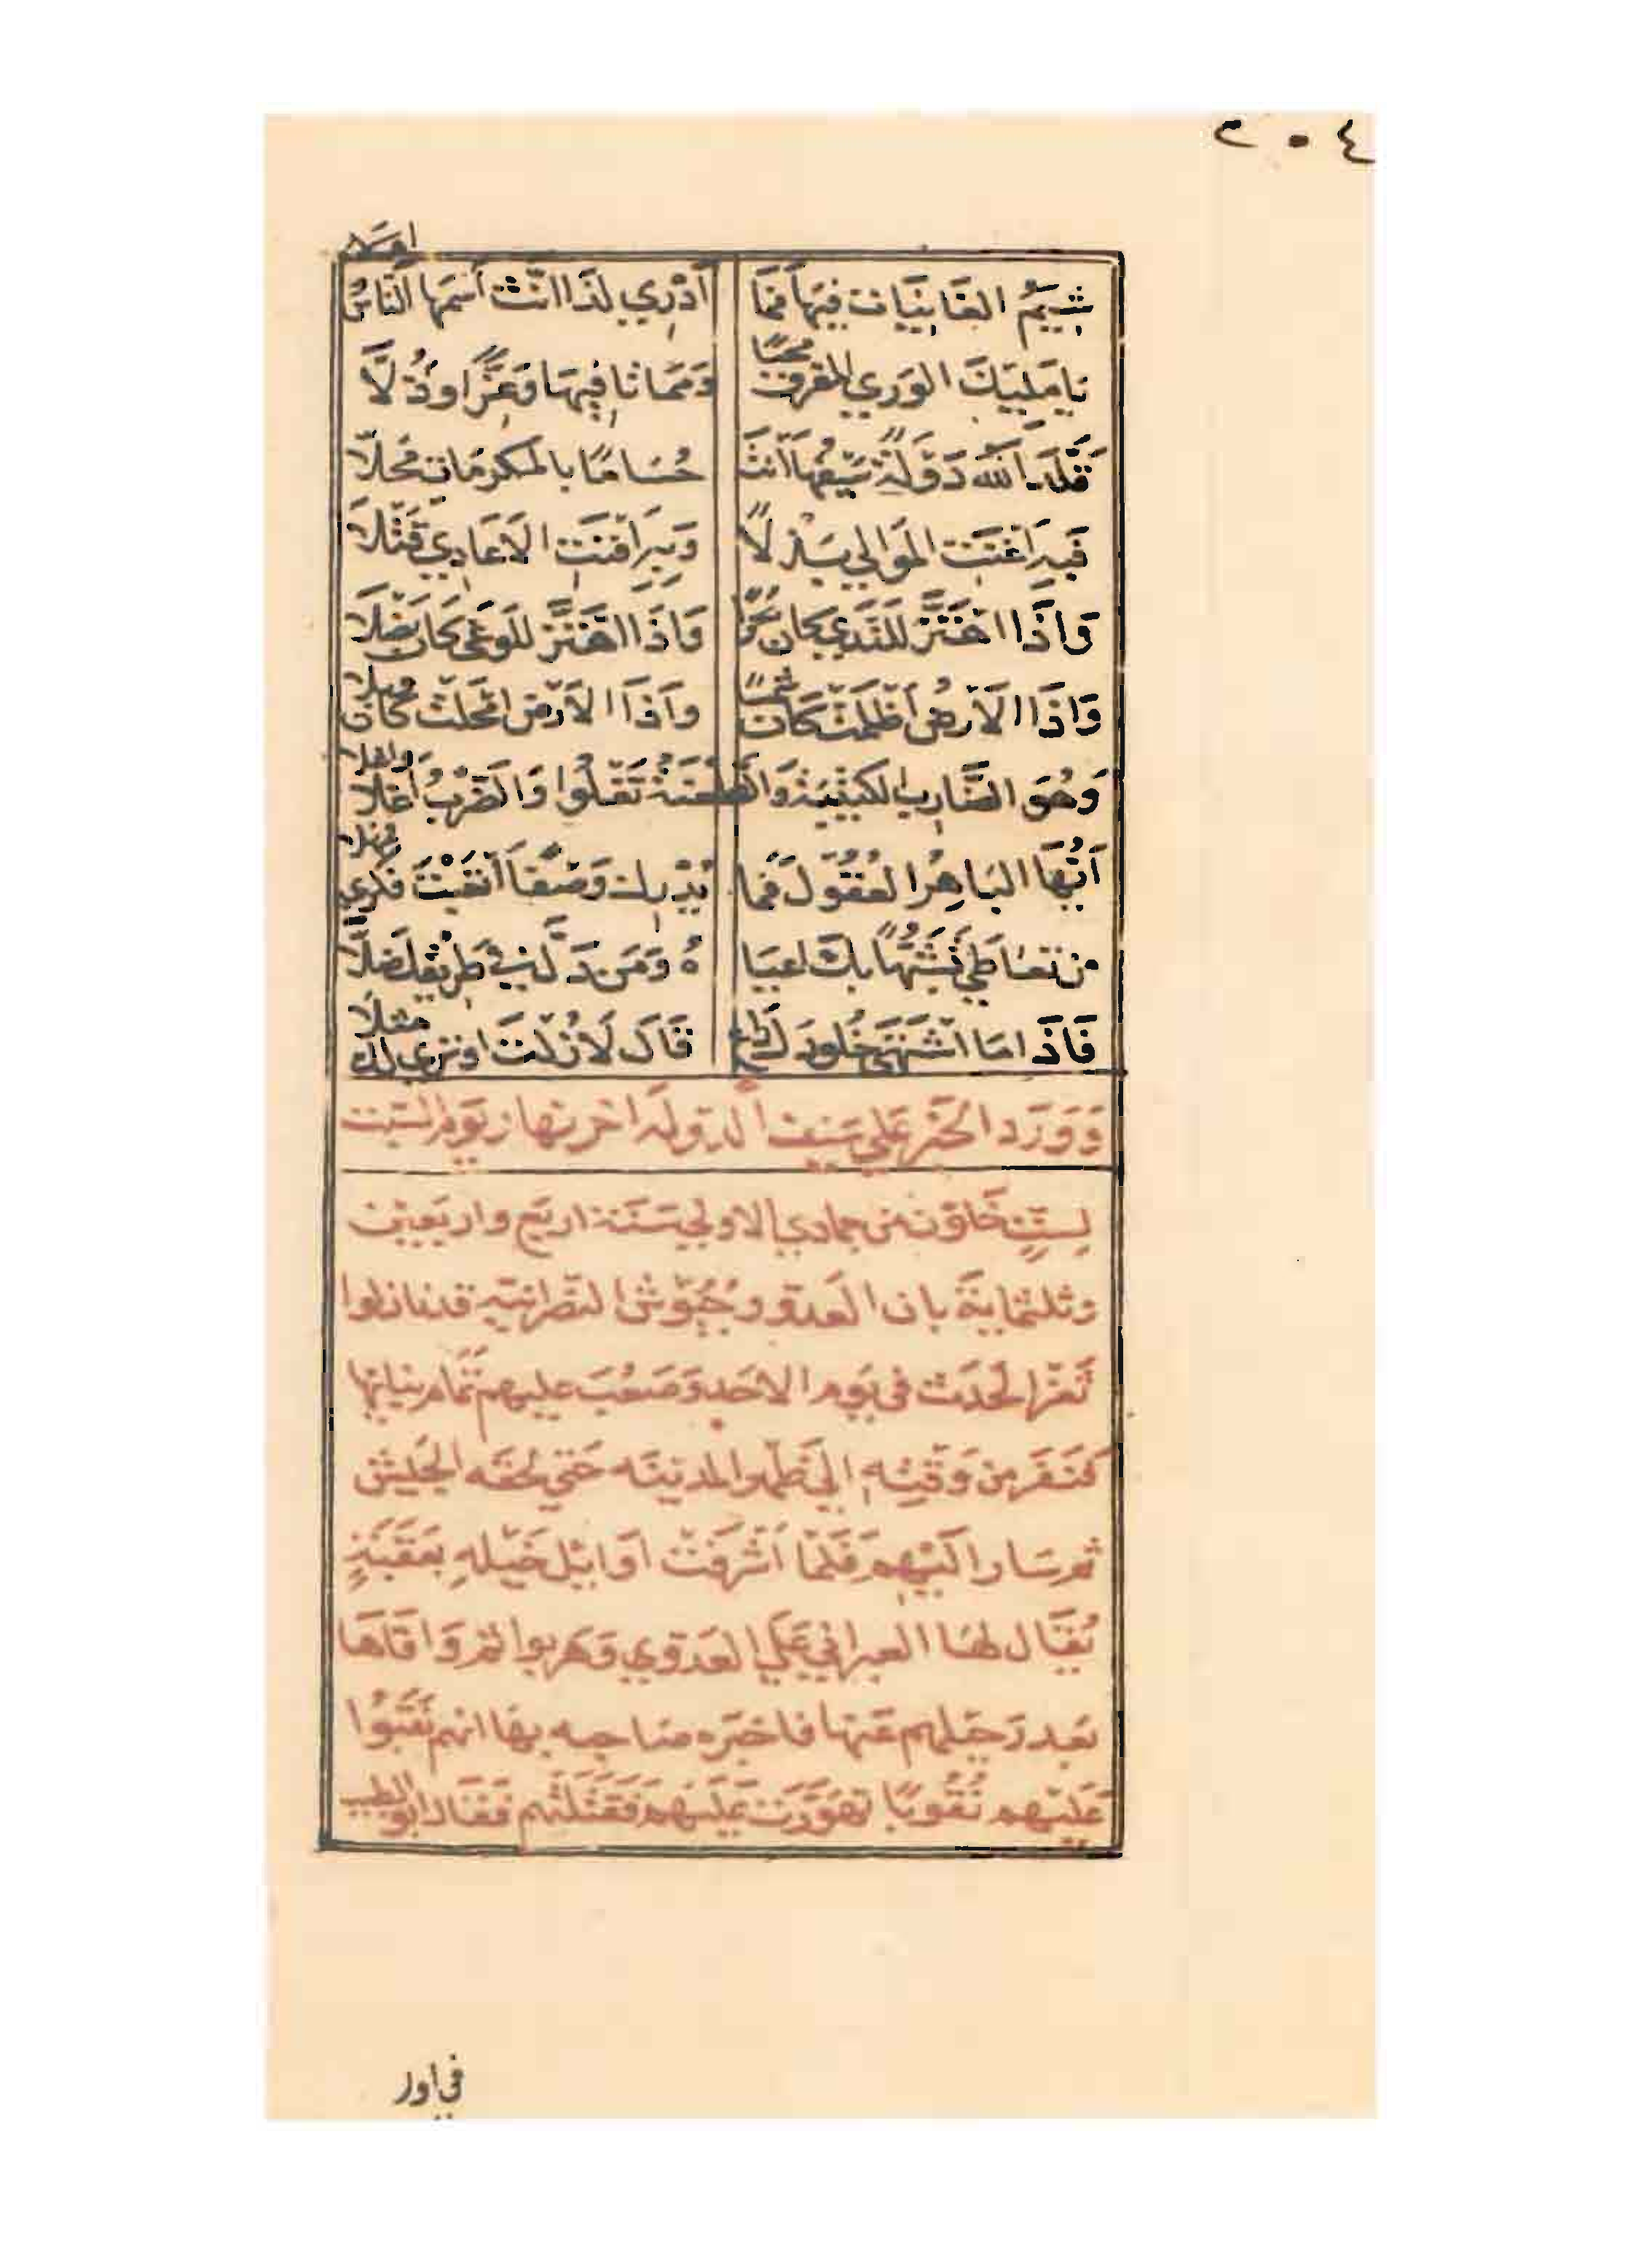 ٢٠٤
شِيَمُ الغَانِيَات فِيهَا فمَا أَدْرِي لذَا انّث أسمَهَا النّاسُ امْ لَا
يَامَلِيكَ الوَرَي المفرق محيًا وَمَمَاتًا فِيهَا وَعِزًّا وذُلَّا
قَلَّدَ اللّه دَوْلَةً سَيْفُهَا أنتَ حُسَامًا بالمكرمَاتِ مُحلَّا
فَبِهِ اغنَتِ الموَالِي بَذلًا وَبِهِ افنَتِ الاَعَادِي قَتْلَا
وَاذَا اهْتَزَّ للنَدَي كان بَحْرًا وَاذَا اهْتَزَّ للوَغَى كَان نَصْلَا
وَاذَا الاَرْضُ أظلمَتْ كَان شَمْسًا وَاذَا الاَرْض امْحَلَتْ كَان وبلا
وَهُوَ الضَّارِب الكَتِيبَة وَالطعنَةُ تَغْلُوا وَالضَّرْبُ أغلَا واغلا
أَيُّهَا البَاهِرُ العُقُولَ فمَا تُدْرك وَصْفًا أتعَبْتَ فكري مهلا
من تعَاطَي تَشَبُّهًا بكَ اعيَا هُ وَمَن دَلَّ في طَرِيقِكَ ضَلَّا
فَاذَا مَا اشْتَهَى خُلُودَكَ دَاعٍ قَالَ لَا زُلْتَ او تري لك مثلًا
وَوَرَد الخبَر عَلَي سَيف الدوله اخر نهار يَوم السَّبت
لسِتٍّ خَلَوْنَ من جمادي الاولي سَنَة اربَع واربَعِين
وثلثمَايَة بان العَدوّ وجُيُوش النصْرانيّه قد نازلوا
ثَغْر الحَدَث في يَوم الاحَد وَصَعُبَ عليهم تمَام بنيانها
فنَفَر من وَقْتِه الي ظهر المدينَه حَتي لحقَه الجَيش
ثم سَار اكبهم فَلمّا اشْرَفَتْ اوَايْل خَيْلهِ بعَقَبَةٍ
يُقَال لهَا العبراني عَلَي العَدوي وَهَربوا ثم وَافَاهَا
بَعد رَحيلهم عَنهَا فاخبَره صَاحبه بهَا انهم نَقَبُوا
عَلَيْهم نُقُوبًا تهَوَّرَت عَلَيهم فَقَتَلَتْهم فقال ابو الطيب
في اور